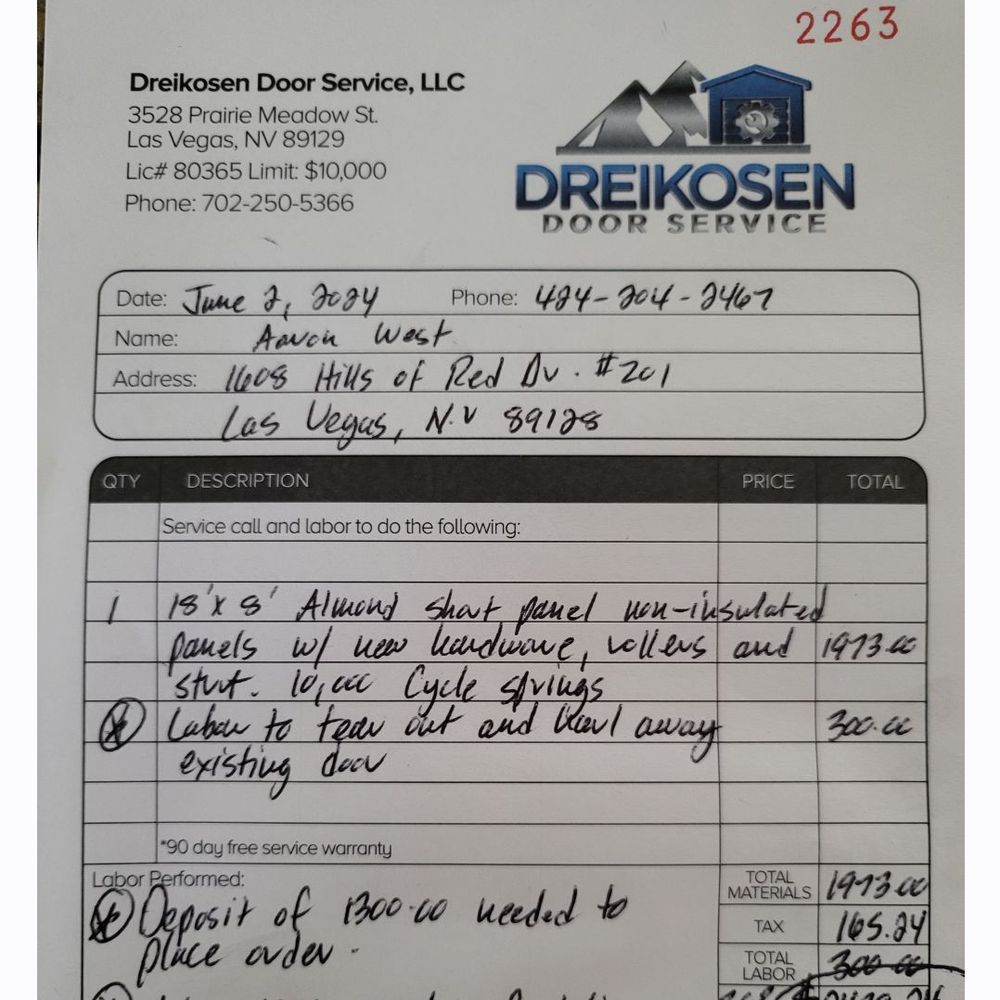 2263
Dreikosen Door Service, LLC
3528 Prairie Meadow St.
Las Vegas, NV 89129
Lic# 80365 Limit: $10,000
Phone: 702-250-5366
DREIKOSEN
DOOR SERVICE
Date: June 2, 2024 Phone: 424-204-2467
Name: Aaron West
Address: 1608 Hills of Red Dr. #201
Las Vegas, N.V 89128
QTY DESCRIPTION PRICE TOTAL
Service call and labor to do the following:
1 18'x 8' Almond short panel non-insulated
panels w/ new hardware, rollers and 1973.00
strut. 10,000 Cycle springs
Labor to tear out and haul away 300.00
existing door
*90 day free service warranty
Labor Performed:
TOTAL MATERIALS 1973.00
Deposit of 1300.00 needed to
place order.
TAX 165.24
TOTAL LABOR 300.00